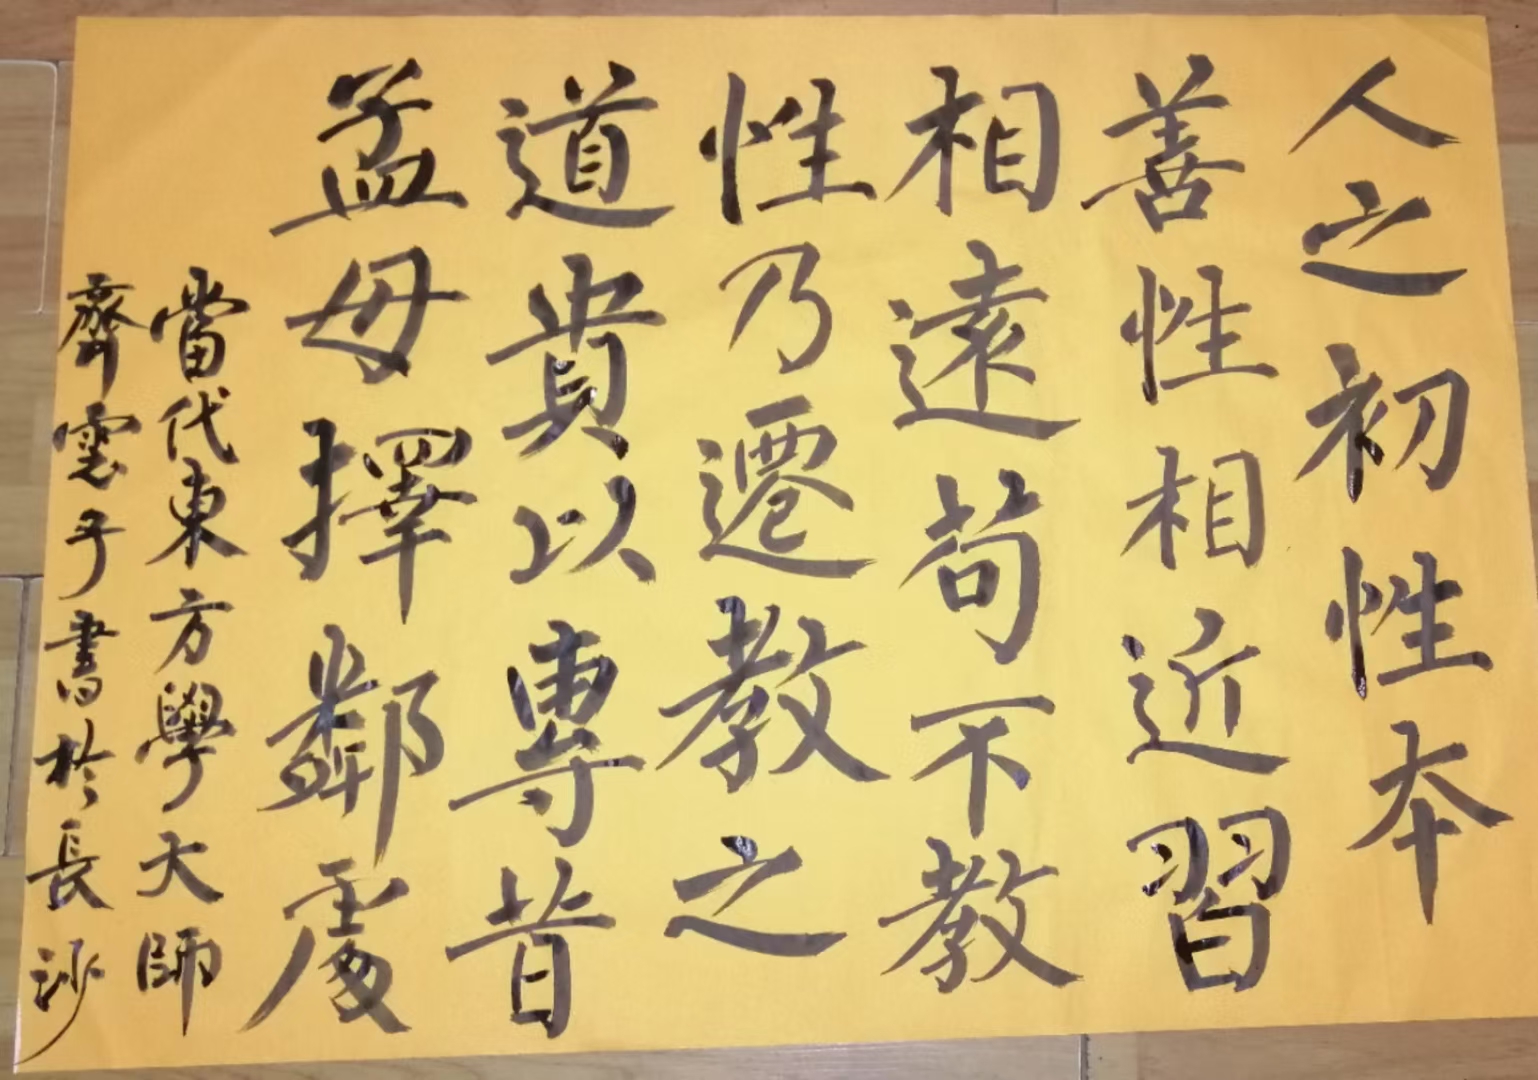 人之初性本
善性相近習
相遠苟不教
性乃遷教之
道貴以專昔
孟母擇鄰處
當代東方學大師
齊雲子書於長沙